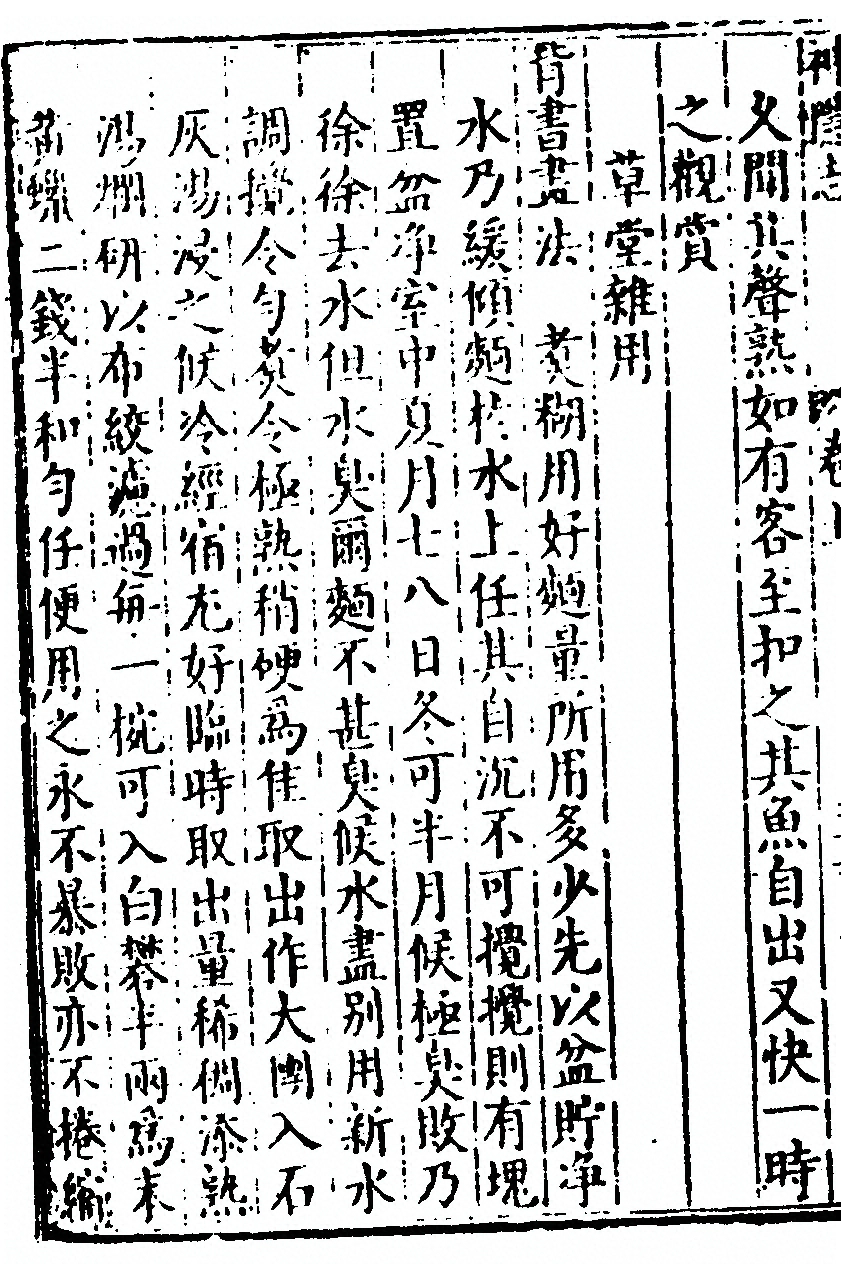 神隱志
卷上
久聞其聲熟如有客至扣之其魚自出又快一時
之觀賞
草堂雜用
背書畫法 煑糊用好麵量所用多少先以盆貯淨
水乃緩傾麵於水上任其自沉不可攪攪則有塊
置盆净室中夏月七八日冬可半月候極臭敗乃
徐徐去水但水臭爾麵不甚臭候水盡別用新水
調攪令勻煑令極熟稍硬爲佳取出作大團入石
灰湯浸之候冷經宿尤好臨時取出量稀稠添熟
湯爛研以布絞濾過每一椀可入白礬半兩爲末
黃蠟二錢半和勻任便用之永不暴敗亦不捲縮